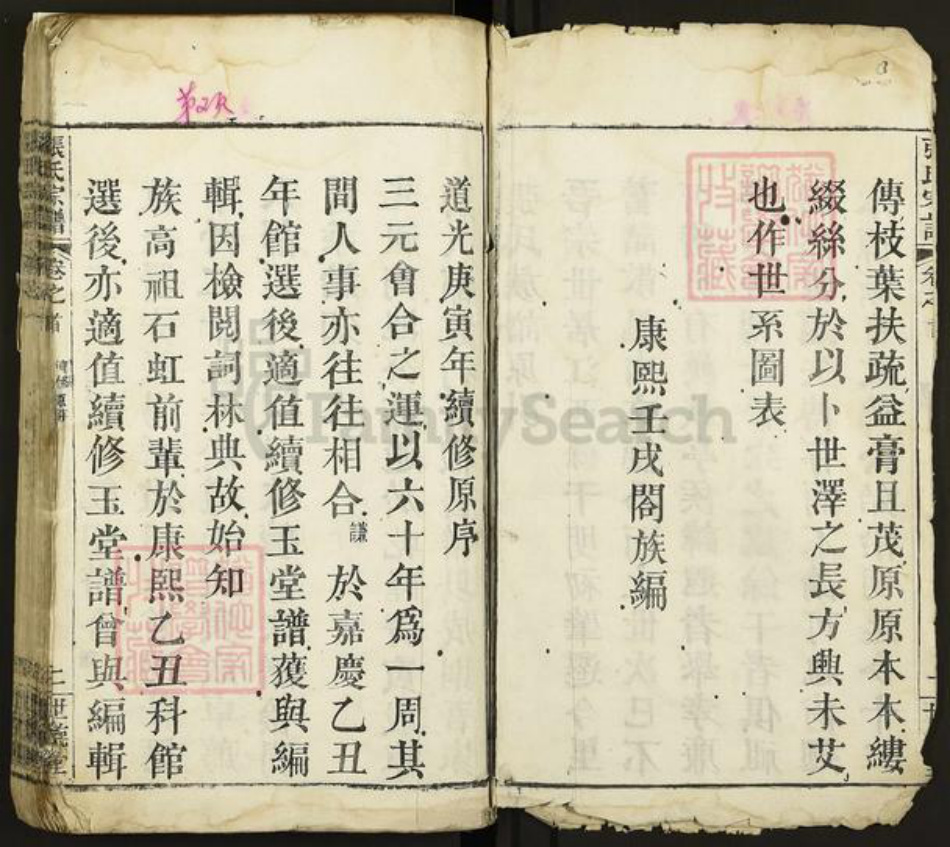 傳枝葉扶疏益膏且茂原原本本縷
綴絲分於以卜世澤之長方興未艾
也作世系圖表
康熙壬戌閤族編
道光庚寅年續修原序
三元會合之運以六十年為一周其
間人事亦往往相合謙於嘉慶乙丑
年館選後適值續修玉堂譜獲與編
輯因檢閱詞林典故始知
族高祖石虹前輩於康熙乙丑科館
選後亦適值續修玉堂譜曾與編輯
張氏宗譜
卷之首
FamilySearch